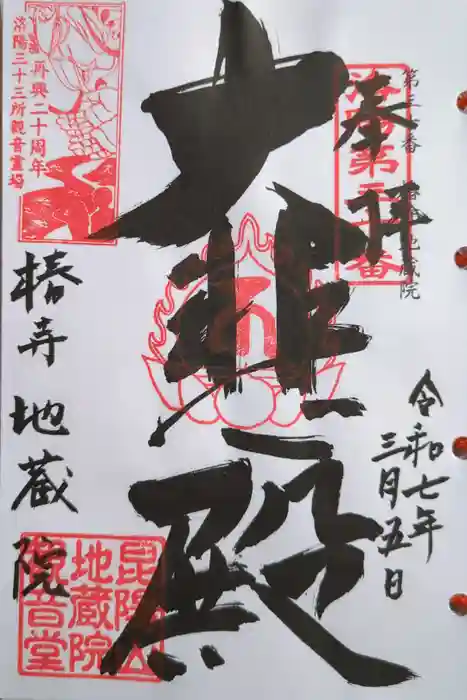 奉拝
第三十番 椿寺地蔵院
洛陽第三十番
令和七年
三月五日
大悲殿
椿寺 地蔵院
再興二十周年
洛陽三十三所観音霊場
昆陽山
地蔵院
観音堂